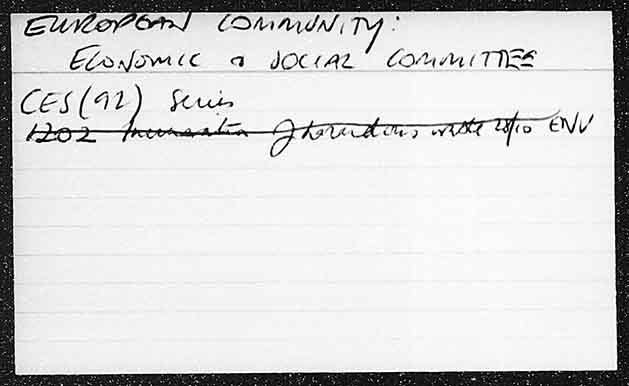 EUROPEAN COMMUNITY:
ECONOMIC & SOCIAL COMMITTEE
CES(92) Series
1202 Incineration of hazardous waste 28/10 ENV